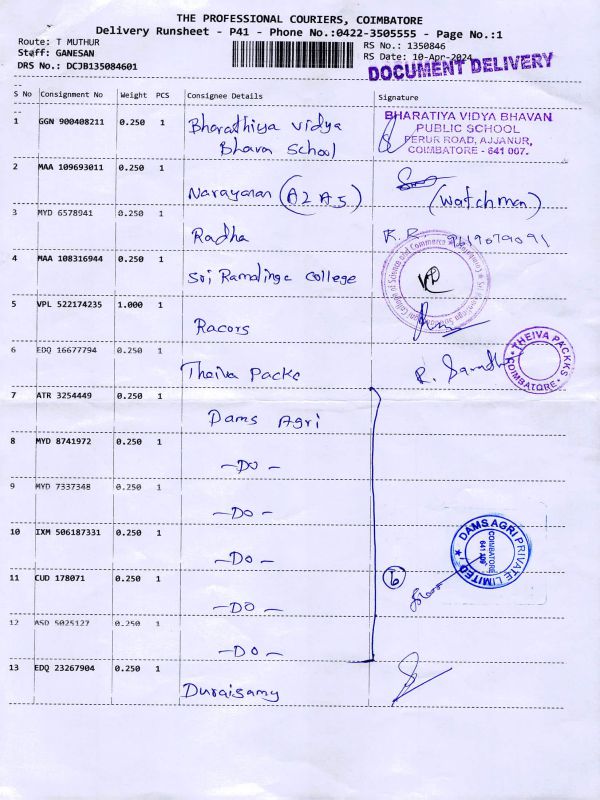 THE PROFESSIONAL COURIERS, COIMBATORE
Delivery Runsheet - P41 - Phone No.:0422-3505555 - Page No.:1
Route: T MUTHUR
Staff: GANESAN
DRS No.: DCJB135084601
RS No.: 1350846
RS Date: 10-Apr-2024
DOCUMENT DELIVERY
S No Consignment No Weight PCS Consignee Details Signature
1 GGN 900408211 0.250 1 Bharathiya vidya
Bhavan School
BHARATIYA VIDYA BHAVAN
PUBLIC SCHOOL
PERUR ROAD, AJJANUR,
COIMBATORE - 641 007.
2 MAA 109693011 0.250 1
Narayanan (A2 A5) (Watchman)
3 MYD 6578941 0.250 1
Radha K.R. 9619079091
4 MAA 108316944 0.250 1
Sri Ramalinga College
5 VPL 522174235 1.000 1
Racors
6 EDQ 16677794 0.250 1
Theiva Packs R.
THEIVA PACKKS
COIMBATORE
7 ATR 3254449 0.250 1
Dams Agri
8 MYD 8741972 0.250 1
-DO-
9 MYD 7337348 0.250 1
-DO-
10 IXM 506187331 0.250 1
-DO-
DAMS AGRI PRIVATE LIMITED
COIMBATORE
11 CUD 178071 0.250 1
6
-DO-
12 ASD 5025127 0.250 1
-DO-
13 EDQ 23267904 0.250 1
Duraisamy